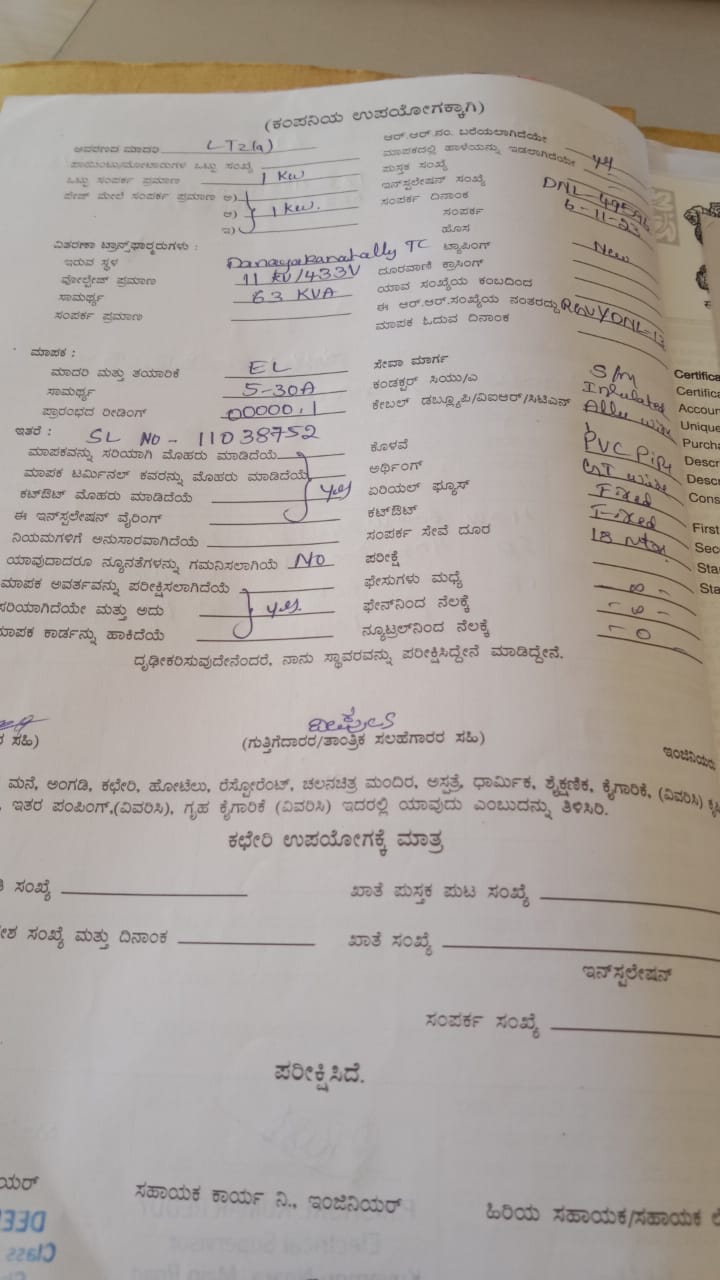 (ಕಂಪನಿಯ ಉಪಯೋಗಕ್ಕಾಗಿ)
ಆವರಣದ ಮಾದರಿ LT2(a)
ಪಾಯಿಂಟು/ಮೋಟಾರುಗಳ ಒಟ್ಟು ಸಂಖ್ಯೆ
ಒಟ್ಟು ಸಂಪರ್ಕ ಪ್ರಮಾಣ 1 Kw
ಪೇಜ್ ಮೇಲೆ ಸಂಪರ್ಕ ಪ್ರಮಾಣ ಅ)
ಆ) 1 Kw.
ಇ)
ವಿತರಣಾ ಟ್ರಾನ್ಸ್‌ಫಾರ್ಮರುಗಳು :
ಇರುವ ಸ್ಥಳ Danayakanahally TC
ವೋಲ್ಟೇಜ್ ಪ್ರಮಾಣ 11 KV/433V
ಸಾಮರ್ಥ್ಯ 63 KVA
ಸಂಪರ್ಕ ಪ್ರಮಾಣ
ಆರ್.ಆರ್.ನಂ. ಬರೆಯಲಾಗಿದೆಯೇ
ಮಾಪಕದಲ್ಲಿ ಹಾಳೆಯನ್ನು ಇಡಲಾಗಿದೆಯೇ
ಪುಸ್ತಕ ಸಂಖ್ಯೆ
ಇನ್‌ಸ್ಟಲೇಷನ್ ಸಂಖ್ಯೆ
ಸಂಪರ್ಕ ದಿನಾಂಕ 6-11-23
ಸಂಪರ್ಕ
ಹೊಸ New
ಟ್ಯಾಪಿಂಗ್
ದೂರವಾಣಿ ಕ್ರಾಸಿಂಗ್
ಯಾವ ಸಂಖ್ಯೆಯ ಕಂಬದಿಂದ
ಈ ಆರ್.ಆರ್.ಸಂಖ್ಯೆಯ ನಂತರದ್ದು
ಮಾಪಕ ಓದುವ ದಿನಾಂಕ
ಮಾಪಕ :
ಮಾದರಿ ಮತ್ತು ತಯಾರಿಕೆ EL
ಸಾಮರ್ಥ್ಯ 5-30A
ಪ್ರಾರಂಭದ ರೀಡಿಂಗ್ 00000.1
ಇತರೆ : SL No - 11038752
ಮಾಪಕವನ್ನು ಸರಿಯಾಗಿ ಮೊಹರು ಮಾಡಿದೆಯೆ
ಮಾಪಕ ಟರ್ಮಿನಲ್ ಕವರನ್ನು ಮೊಹರು ಮಾಡಿದೆಯೆ
ಕಟ್‌ಔಟ್ ಮೊಹರು ಮಾಡಿದೆಯೆ yes
ಈ ಇನ್‌ಸ್ಟಲೇಷನ್ ವೈರಿಂಗ್
ನಿಯಮಗಳಿಗೆ ಅನುಸಾರವಾಗಿದೆಯೆ
ಯಾವುದಾದರೂ ನ್ಯೂನತೆಗಳನ್ನು ಗಮನಿಸಲಾಗಿಯೆ No
ಮಾಪಕ ಅವರ್ತವನ್ನು ಪರೀಕ್ಷಿಸಲಾಗಿದೆಯೆ
ಸರಿಯಾಗಿದೆಯೇ ಮತ್ತು ಅದು yes.
ಮಾಪಕ ಕಾರ್ಡನ್ನು ಹಾಕಿದೆಯೆ
ಸೇವಾ ಮಾರ್ಗ S/M
ಕಂಡಕ್ಟರ್ ಸಿಯು/ಎ
ಕೇಬಲ್ ಡಬ್ಲ್ಯೂಪಿ/ವಿಐಆರ್/ಸಿಟಿಎನ್
ಕೊಳವೆ PVC Pipe
ಅರ್ಥಿಂಗ್
ಏರಿಯಲ್ ಫ್ಯೂಸ್ Fixed
ಕಟ್‌ಔಟ್ Fixed
ಸಂಪರ್ಕ ಸೇವೆ ದೂರ 18 Mtrs
ಪರೀಕ್ಷೆ
ಫೇಸುಗಳು ಮಧ್ಯೆ
ಫೇಸ್‌ನಿಂದ ನೆಲಕ್ಕೆ
ನ್ಯೂಟ್ರಲ್‌ನಿಂದ ನೆಲಕ್ಕೆ
ದೃಢೀಕರಿಸುವುದೇನೆಂದರೆ, ನಾನು ಸ್ಥಾವರವನ್ನು ಪರೀಕ್ಷಿಸಿದ್ದೇನೆ ಮಾಡಿದ್ದೇನೆ.
ಸಹಿ)
(ಗುತ್ತಿಗೆದಾರರ/ತಾಂತ್ರಿಕ ಸಲಹೆಗಾರರ ಸಹಿ)
ಮನೆ, ಅಂಗಡಿ, ಕಛೇರಿ, ಹೋಟೆಲು, ರೆಸ್ಟೋರೆಂಟ್, ಚಲನಚಿತ್ರ ಮಂದಿರ, ಅಸ್ಪತ್ರೆ, ಧಾರ್ಮಿಕ, ಶೈಕ್ಷಣಿಕ, ಕೈಗಾರಿಕೆ, (ವಿವರಿಸಿ)
ಇತರ ಪಂಪಿಂಗ್,(ವಿವರಿಸಿ), ಗೃಹ ಕೈಗಾರಿಕೆ (ವಿವರಿಸಿ) ಇದರಲ್ಲಿ ಯಾವುದು ಎಂಬುದನ್ನು ತಿಳಿಸಿರಿ.
ಕಛೇರಿ ಉಪಯೋಗಕ್ಕೆ ಮಾತ್ರ
ಸಂಖ್ಯೆ
ಖಾತೆ ಪುಸ್ತಕ ಪುಟ ಸಂಖ್ಯೆ
ಸಂಖ್ಯೆ ಮತ್ತು ದಿನಾಂಕ
ಖಾತೆ ಸಂಖ್ಯೆ
ಇನ್‌ಸ್ಟಲೇಷನ್
ಸಂಪರ್ಕ ಸಂಖ್ಯೆ
ಪರೀಕ್ಷಿಸಿದೆ.
ಸಹಾಯಕ ಕಾರ್ಯ ನಿ., ಇಂಜಿನಿಯರ್
ಹಿರಿಯ ಸಹಾಯಕ/ಸಹಾಯಕ
Certifica
Certifica
Accoun
Unique
Purcha
Descr
Desc
Cons
First
Sec
Sta
Sta